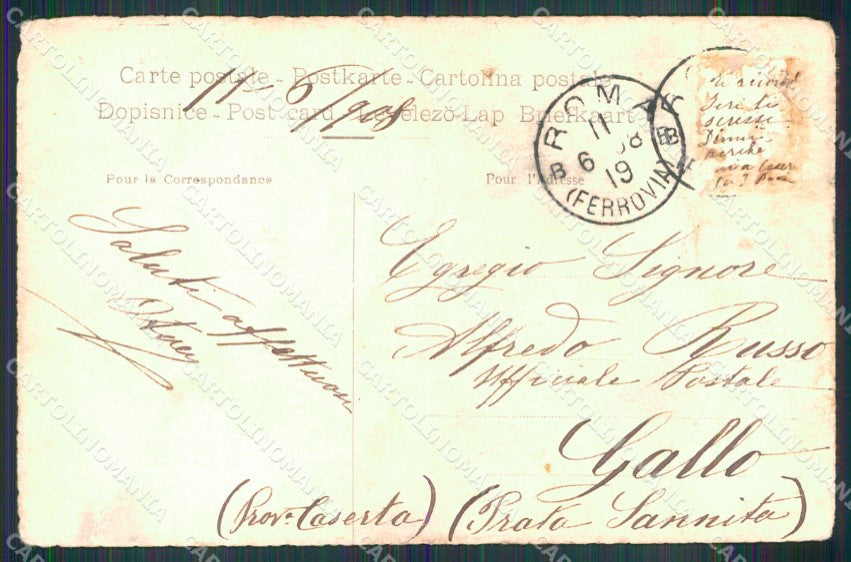 Carte postale - Postkarte - Cartolina postale
Dopisnice - Post card - Levelező-Lap Briefkaart
11-6/908
Pour la Correspondance
Pour l'Adresse
ROMA
11
6 08
19
B
(FERROVIA)
ti ricordi
Ieri ti
scrissi
Dimmi
perchè
Saluti affettuosi
Egregio Signore
Alfredo Russo
Ufficiale Postale
Gallo
(Prov.a Caserta) (Prata Sannita)
CARTOLINOMANIA